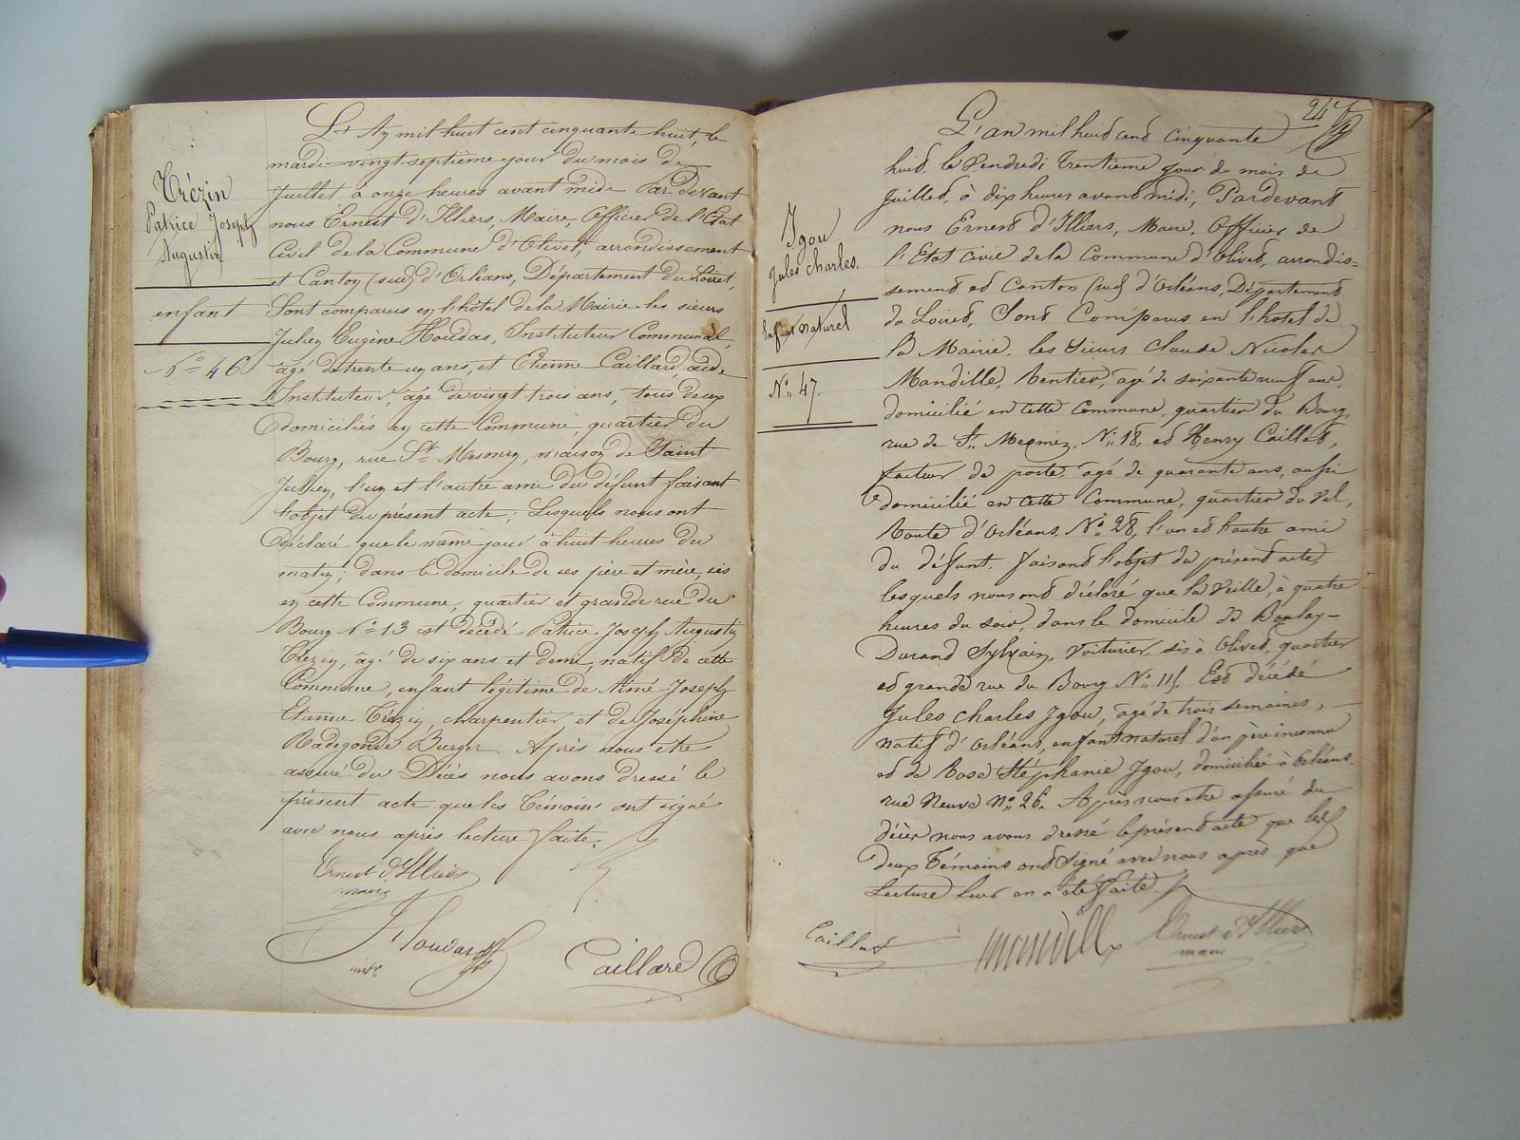 Trézin
Patrice Joseph
Augustin
enfant
N° 46
L'An mil huit cent cinquante huit, le
mardi vingt septième jour du mois de
Juillet à onze heures avant midi Par Devant
nous Ernest d'Illiers, Maire, Officier de l'Etat
Civil de la Commune d'Olivet, arrondissement
et Canton (sud) d'Orléans, Département du Loiret,
Sont comparus en l'hôtel de la Mairie les sieurs
Julien Eugène Houdas, Instituteur Communal,
âgé de trente un ans, et Etienne Caillard, aide
Instituteur, âgé de vingt trois ans, tous deux
domiciliés en cette Commune, quartier du
Bourg, rue St Mesmin, maison de Saint
Julien, l'un et l'autre amis du défunt faisant
l'objet du présent acte; Lesquels nous ont
Déclaré que le même jour à huit heures du
matin; dans le domicile de ses père et mère, sis
en cette Commune, quartier et grande rue du
Bourg N° 13 est décédé Patrice Joseph Augustin
Trézin, âgé de six ans et demi, natif de cette
Commune, enfant légitime de Aimé Joseph
Etienne Trézin, charpentier, et de Joséphine
Radegonde Burger. Après nous être
assuré du Décès nous avons dressé le
présent acte que les Témoins ont signé
avec nous après lecture faite.
Ernest d'Illiers
maire
J. Houdas
Caillard
24
Igou
Jules Charles.
Enfant naturel
N° 47.
L'an mil huit cent cinquante
huit, le Vendredi trentième jour du mois de
Juillet, à dix heures avant midi, Pardevant
nous Ernest d'Illiers, Maire, Officier de
l'Etat Civil de la Commune d'Olivet, arrondis=
sement et Canton (sud) d'Orléans, Département
du Loiret, Sont Comparus en l'hotel de
la Mairie, les Sieurs Claude Nicolas
Mandille, Rentier, agé de soixante neuf ans,
domicilié en cette Commune, quartier du Bourg,
rue de St. Mesmin, N° 18, et Henry Caillot,
facteur de poste agé de quarante ans, aussi
domicilié en cette Commune, quartier du Val,
Route d'Orléans, N° 28, l'un et l'autre amis
du défunt faisant l'objet du présent acte,
lesquels nous ont déclaré que la Veille, à quatre
heures du soir, dans le domicile de Boulay-
Durand Sylvain, Voiturier, sis à Olivet, quartier
et grande rue du Bourg N° 115. Est décédé
Jules Charles Igou, agé de trois semaines,
natif d'Orléans, enfant naturel d'un père inconnu
et de Rose Stéphanie Igou, domiciliée à Orléans
rue Neuve N° 26. Après nous être assuré du
décès nous avons dressé le présent acte que les
deux Témoins ont signé avec nous après que
Lecture leur en a été faite.
Caillot
Mandille
Ernest d'Illiers
maire